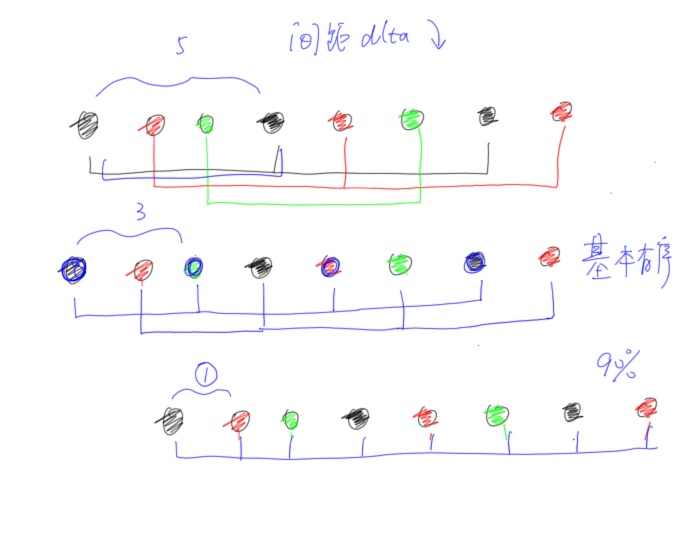 间距 dlta ↓
5
3
基本有序
①
90%